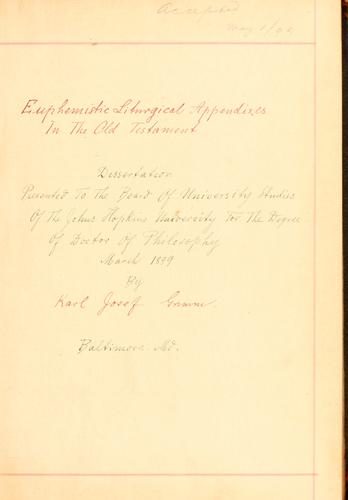 Accepted
May 1/99
Euphemistic Liturgical Appendixes
In The Old Testament
Dissertation
Presented To The Board Of University Studies
Of The Johns Hopkins University For The Degree
Of Doctor Of Philosophy
March 1899
By
Karl Josef Grimm.
Baltimore Md.